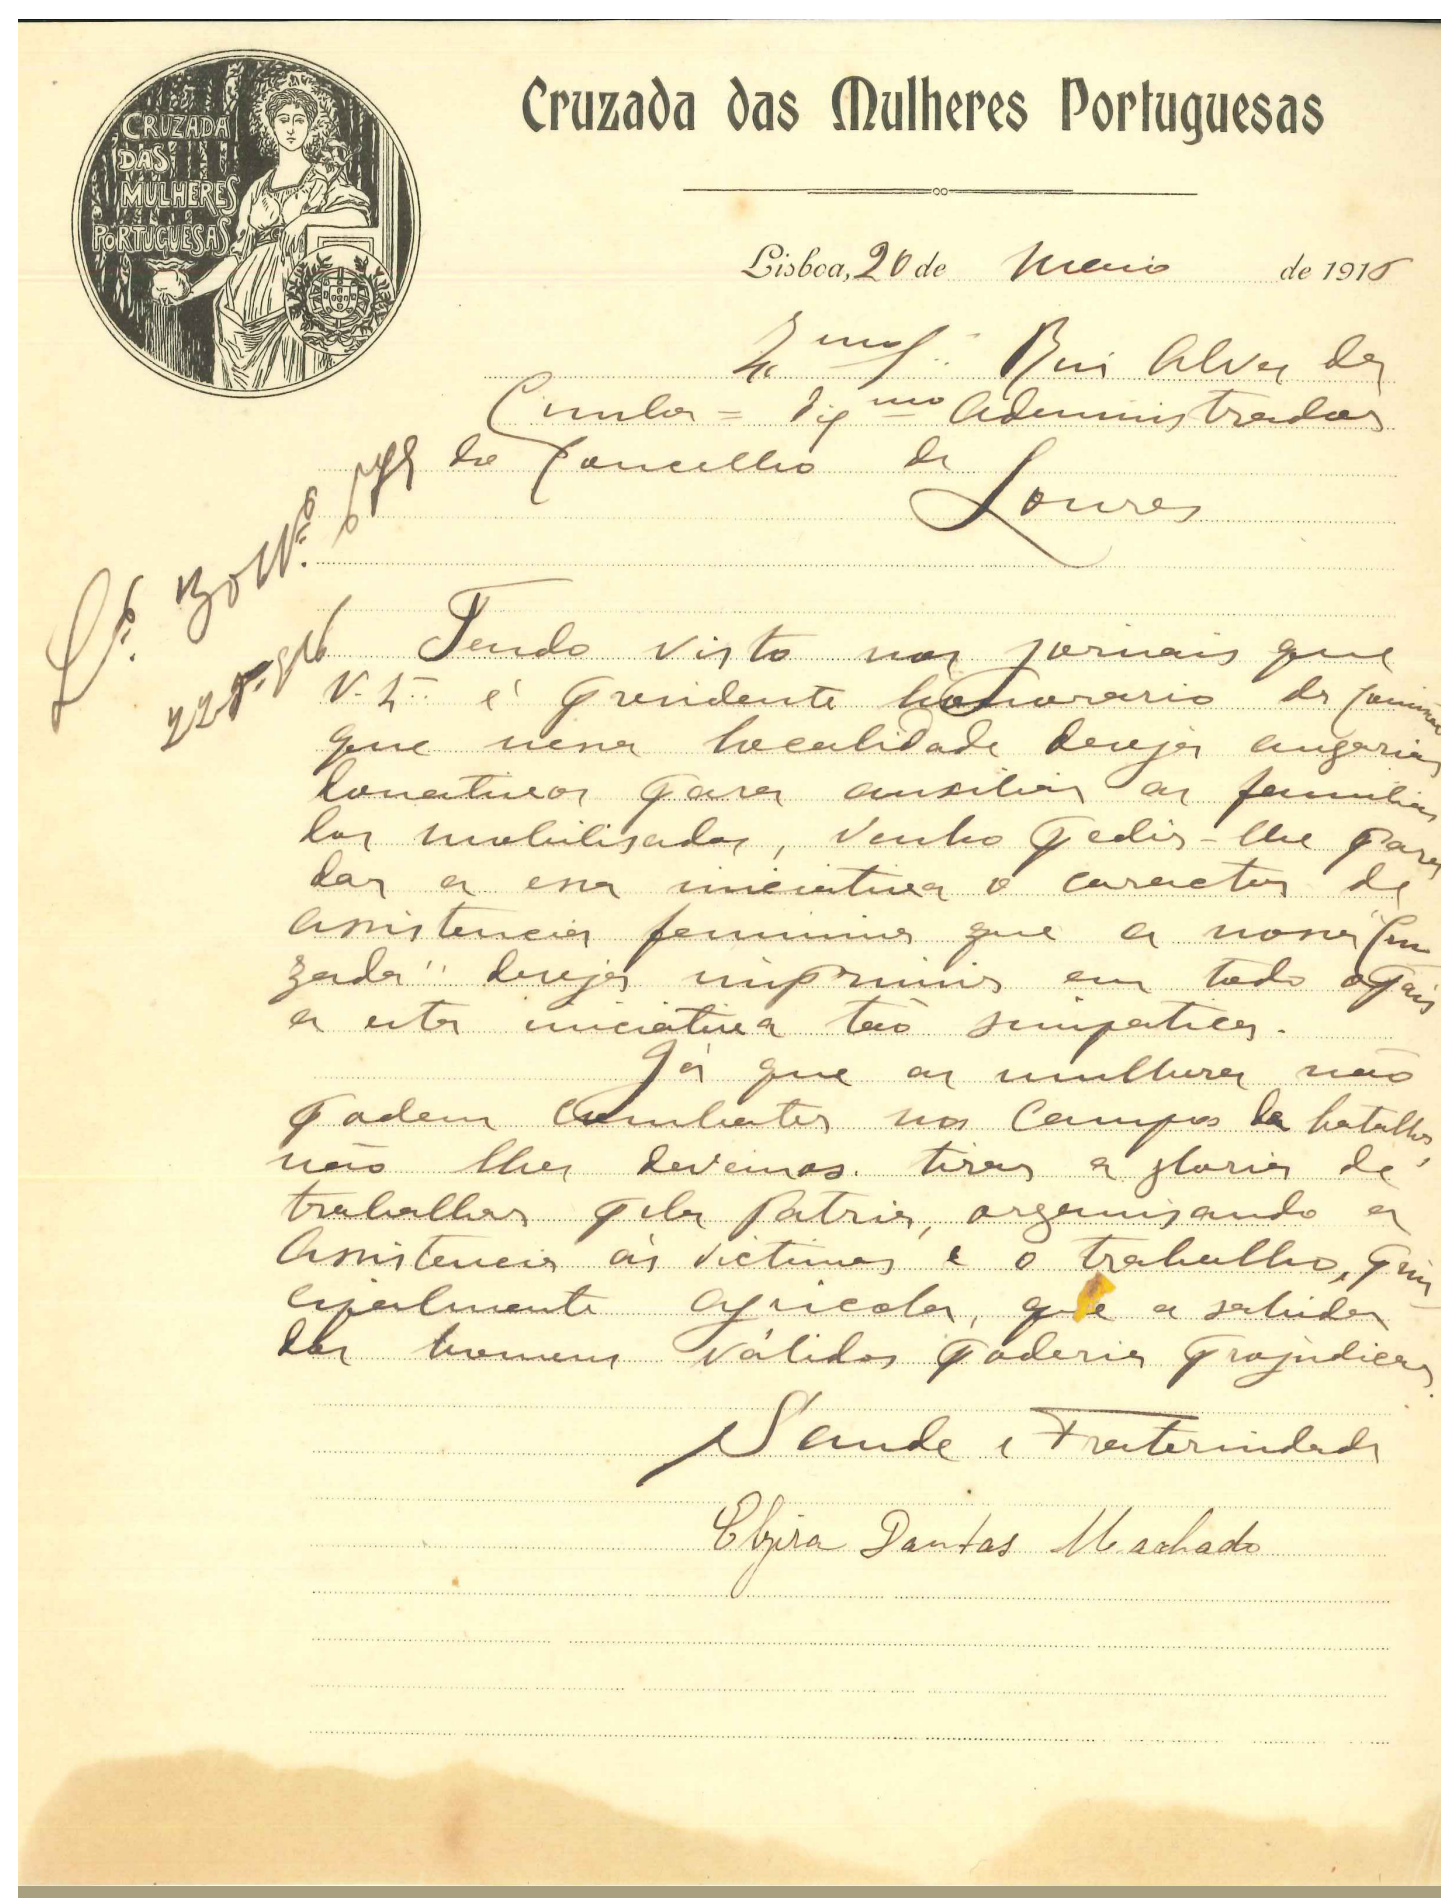 CRUZADA
DAS
MULHERES
PORTUGUESAS
Cruzada das Mulheres Portuguesas
Lisboa, 20 de Maio de 1916
Exmo Snr. Rui Alves da
Cunha = Digmo Administrador
do Concelho de
Loures
Lo. 13 o Nº 6
22-5-916
Tendo visto nos jornais que
V. Exª é presidente honorario da Comissão
que nessa localidade deseja angariar
donativos para auxiliar as familias
dos mobilisados, venho pedir-lhe para
dar a essa iniciativa o caracter de
assistencia feminina que a nossa "Cru
zada" deseja imprimir em todo o pais
a esta iniciativa tão simpatica.
Já que as mulheres não
podem combater nos campos da batalha,
não lhes devemos tirar a gloria de
trabalhar pela Patria, organisando a
Assistencia ás victimas e o trabalho, prin-
cipalmente agricola, que a sahida
dos homens válidos poderia projudicar.
Saude e Fraternidade
Elzira Dantas Machado